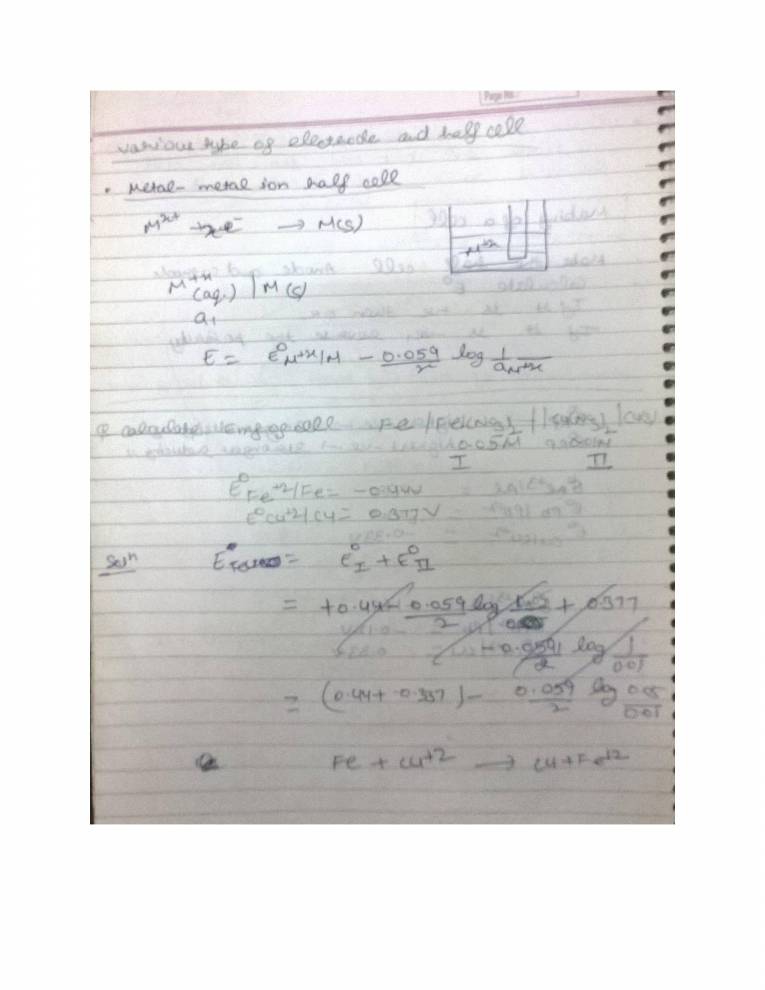 Page No.
various type of electrode and half cell
• Metal- metal ion half cell
Mˣ⁺ + xe⁻ → M(s)
M⁺ˣ
M⁺ˣ(aq.) | M(s)
a₁
E = E⁰ M⁺ˣ/M - 0.059/x log 1/a M⁺ˣ
Q calculate emf of cell Fe / Fe(NO₃)₂ || Cu(NO₃)₂ | Cu(s)
0.05M 0.01M
I II
E⁰ Fe⁺²/Fe = -0.44V
E⁰ Cu⁺²/Cu = 0.377V
Solⁿ = E⁰ I + E⁰ II
= +0.44 - 0.059/2 log + 0.377
- 0.0591/2 log 1/0.01
= (0.44 + 0.337) - 0.059/2 log 0.05/0.01
Fe + Cu⁺² → Cu + Fe⁺²